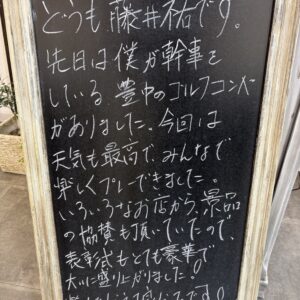 どうも藤井祐です。
先日は僕が幹事を
している豊中のゴルフコンペ
がありました。今回は
天気も最高で、みんなで
楽しくプレーできました。
いろいろなお店から、景品
の協賛も頂いていたので、
表彰式もとても豪華で
大いに盛り上がりました!